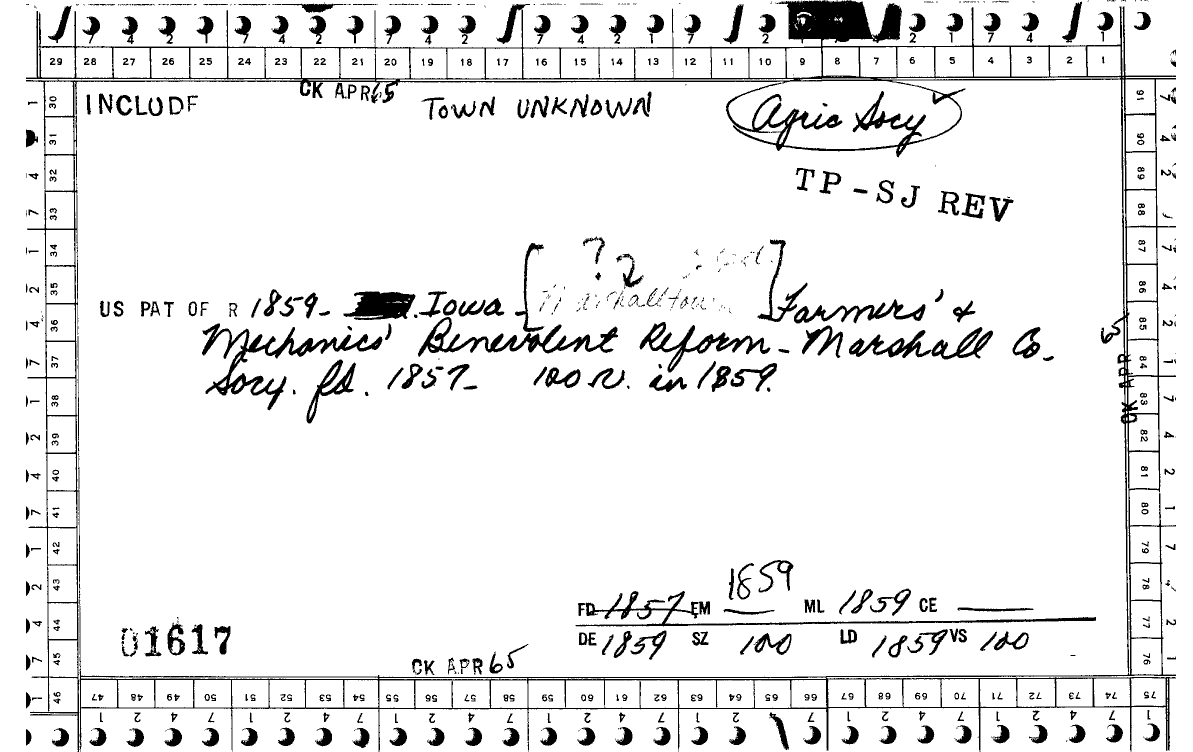 7 4 2 1 7 4 2 1 7 4 2 7 4 2 1 7 2 7 4 2 1 7 4 2 1
29 28 27 26 25 24 23 22 21 20 19 18 17 16 15 14 13 12 11 10 9 8 7 6 5 4 3 2 1
INCLUDE CK APR 65 TOWN UNKNOWN Agric Socy ✓
TP-SJ REV
[? 2
US PAT OF R 1859- Iowa- [Marshalltown] Farmers' &
Mechanics' Benevolent Reform- Marshall Co.
Socy. fd. 1857- 100 v. in 1859.
CK APR 65
1859
FD 1857 EM ML 1859 CE
DE 1859 SZ 100 LD 1859 VS 100
01617
CK APR 65
30 31 32 33 34 35 36 37 38 39 40 41 42 43 44 45 46
91 90 89 88 87 86 85 84 83 82 81 80 79 78 77 76
47 48 49 50 51 52 53 54 55 56 57 58 59 60 61 62 63 64 65 66 67 68 69 70 71 72 73 74 75
1 2 4 7 1 2 4 7 1 2 4 7 1 2 4 7 1 2 4 7 1 2 4 7 1 2 4 7